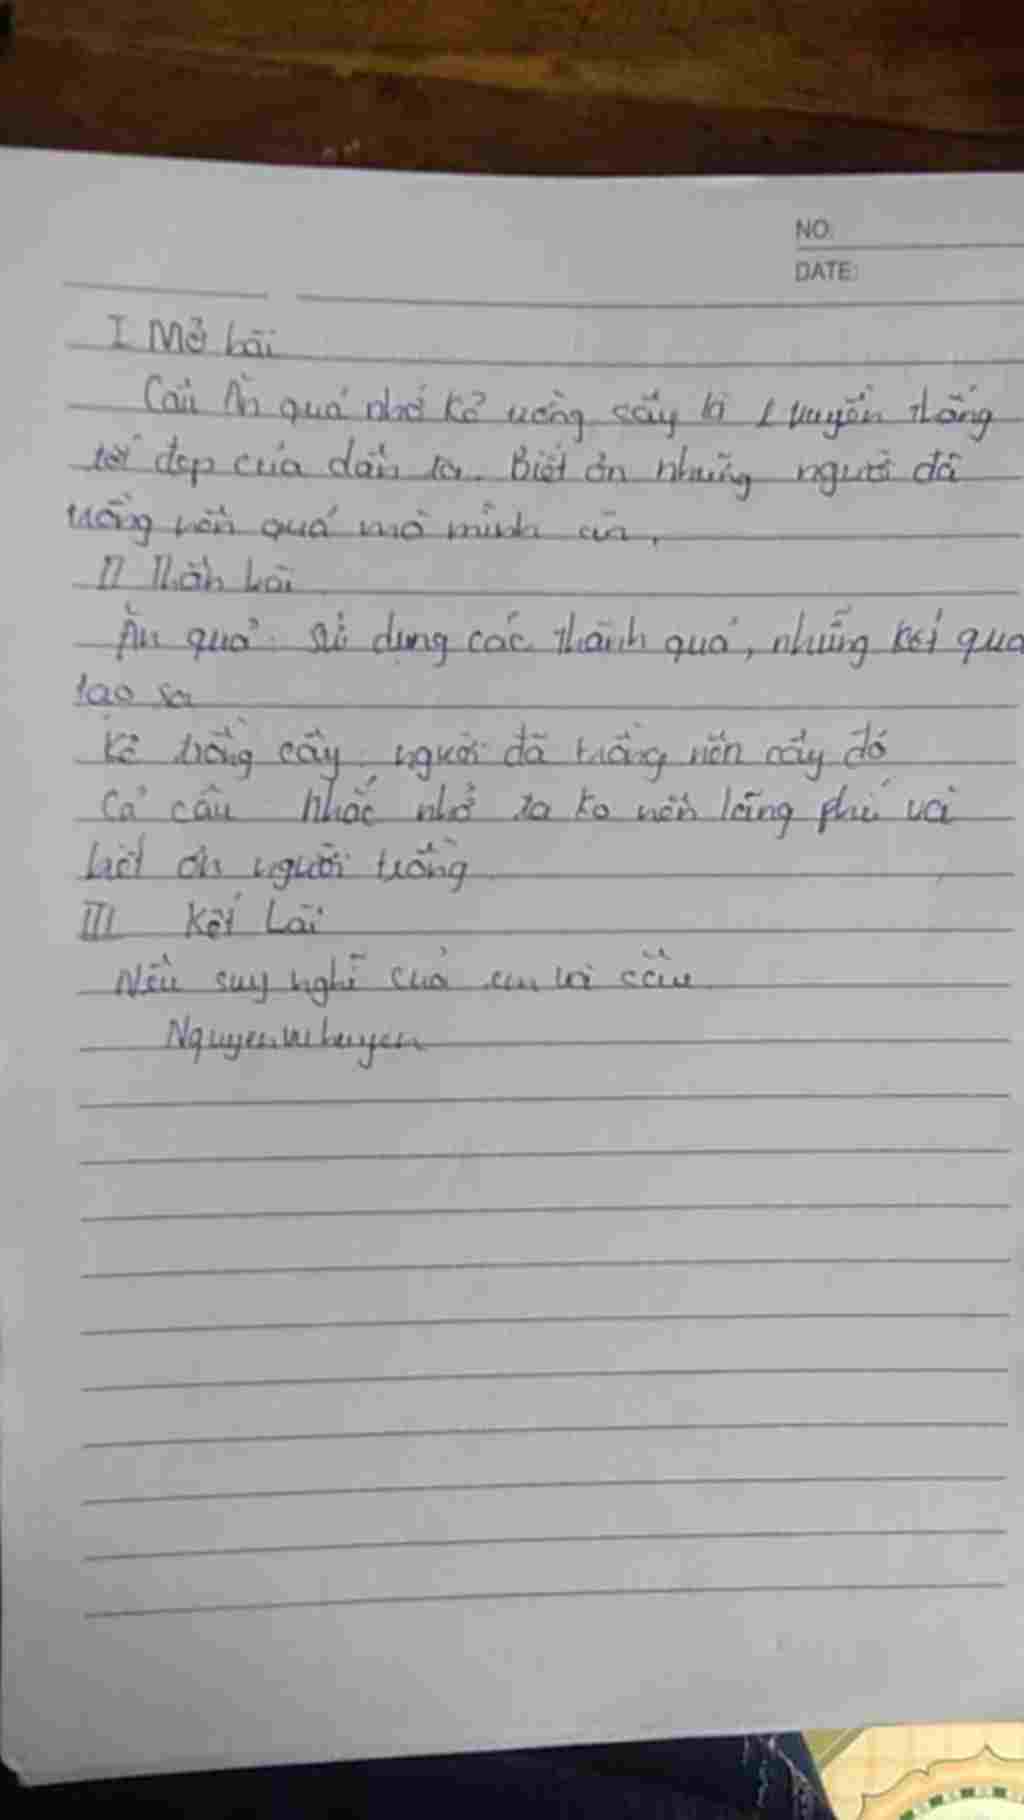 NO:
DATE:
I Mở bài
Câu Ăn quả nhớ kẻ trồng cây là truyền thống
tốt đẹp của dân ta. Biết ơn những người đã
trồng nên quả mà mình ăn.
II Thân bài
Ăn quả: sử dụng các thành quả, những kết quả
tạo sa
kẻ trồng cây: người đã trồng nên cây đó
Cả câu nhắc nhở ta ko nên lãng phí và
biết ơn người trồng
III Kết bài
Nêu suy nghĩ của em về câu